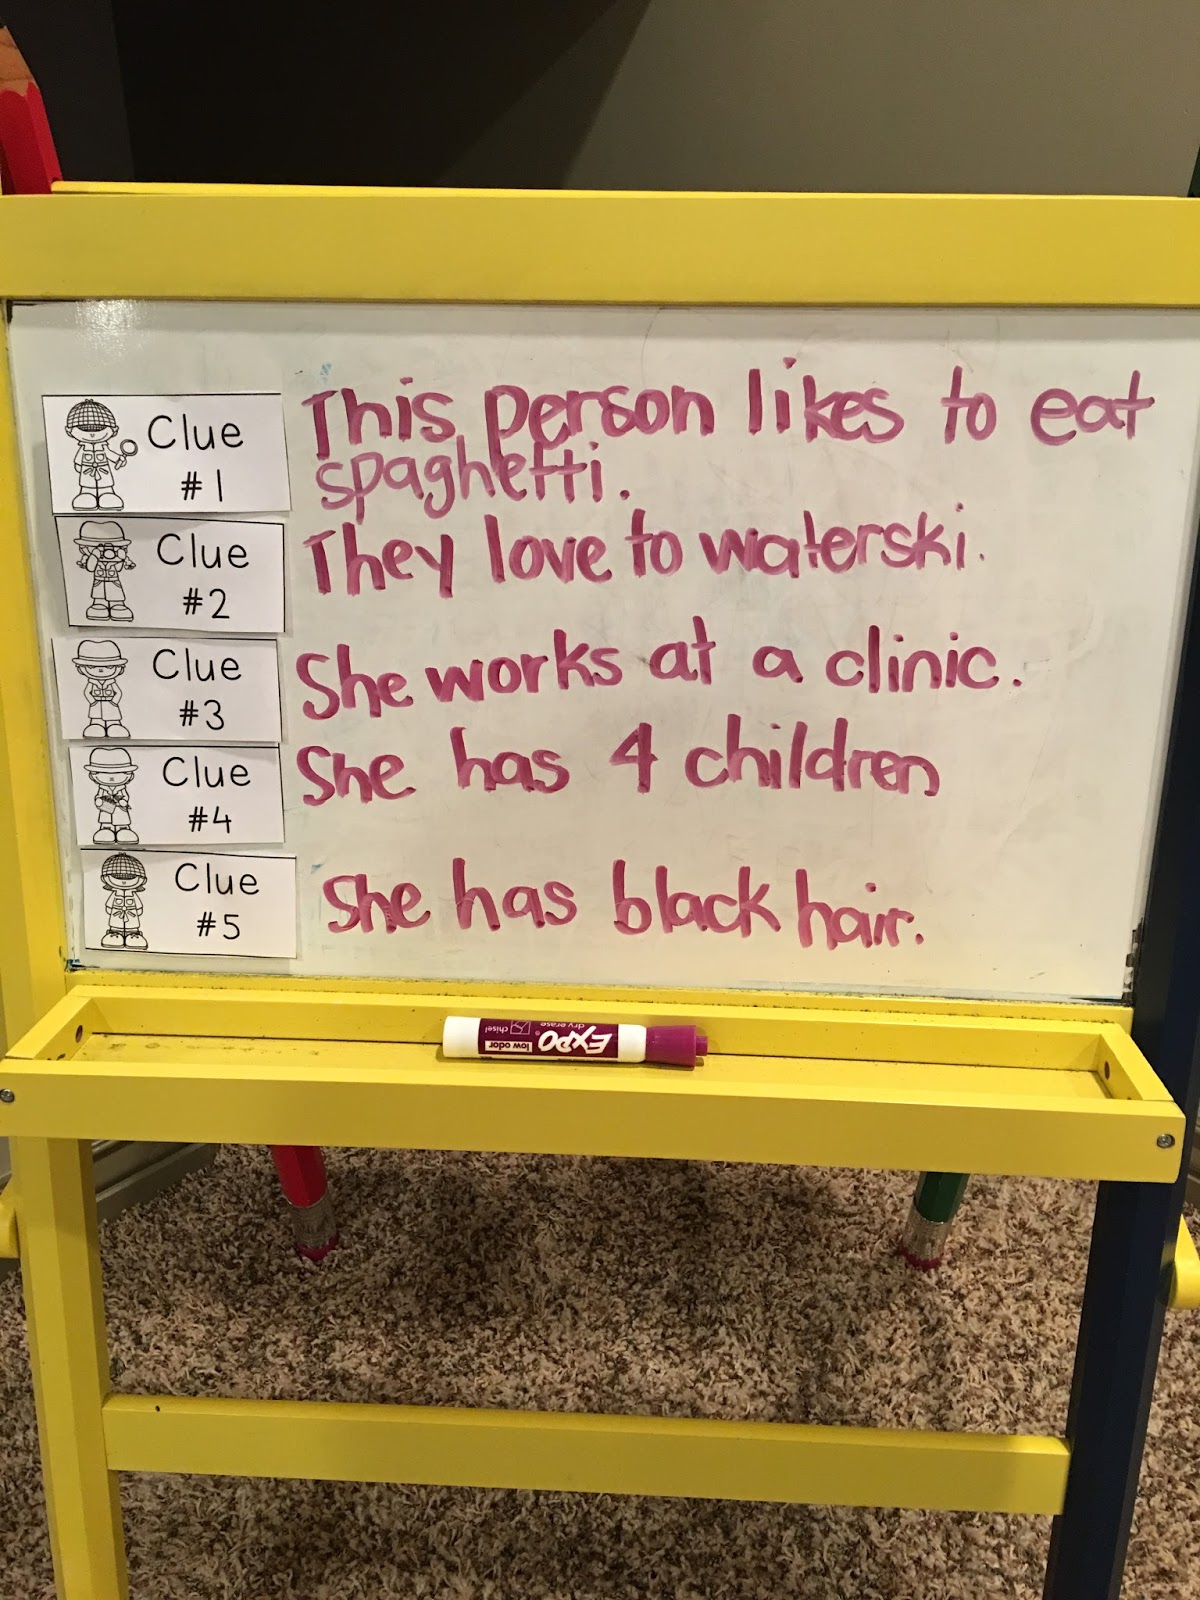 Clue
#1
This person likes to eat
spaghetti.
Clue
#2
They love to waterski.
Clue
#3
She works at a clinic.
Clue
#4
She has 4 children
Clue
#5
She has black hair.
EXPO
low odor
dry erase
chisel